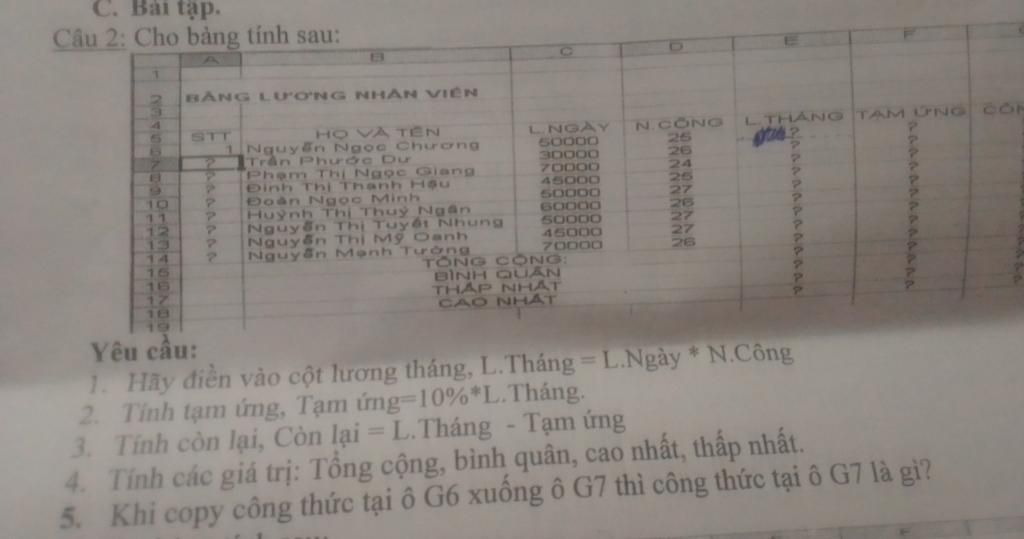 C. Bài tập.
Câu 2: Cho bảng tính sau:
A B C D E F
1
2 BẢNG LƯƠNG NHÂN VIÊN
3
4
5 STT HỌ VÀ TÊN L.NGÀY N.CÔNG L.THÁNG TẠM ỨNG CÒN
6 1 Nguyễn Ngọc Chương 50000 25 ? ?
7 ? Trần Phước Dư 30000 26 ? ?
8 ? Phạm Thị Ngọc Giang 70000 24 ? ?
9 ? Đinh Thị Thanh Hậu 45000 25 ? ?
10 ? Đoàn Ngọc Minh 50000 27 ? ?
11 ? Huỳnh Thị Thuý Ngân 60000 26 ? ?
12 ? Nguyễn Thị Tuyết Nhung 50000 27 ? ?
13 ? Nguyễn Thị Mỹ Oanh 45000 27 ? ?
14 ? Nguyễn Mạnh Tường 70000 26 ? ?
15 TỔNG CỘNG: ? ?
16 BÌNH QUÂN ? ?
17 THẤP NHẤT ? ?
18 CAO NHẤT ? ?
19
Yêu cầu:
1. Hãy điền vào cột lương tháng, L.Tháng = L.Ngày * N.Công
2. Tính tạm ứng, Tạm ứng=10%*L.Tháng.
3. Tính còn lại, Còn lại = L.Tháng - Tạm ứng
4. Tính các giá trị: Tổng cộng, bình quân, cao nhất, thấp nhất.
5. Khi copy công thức tại ô G6 xuống ô G7 thì công thức tại ô G7 là gì?